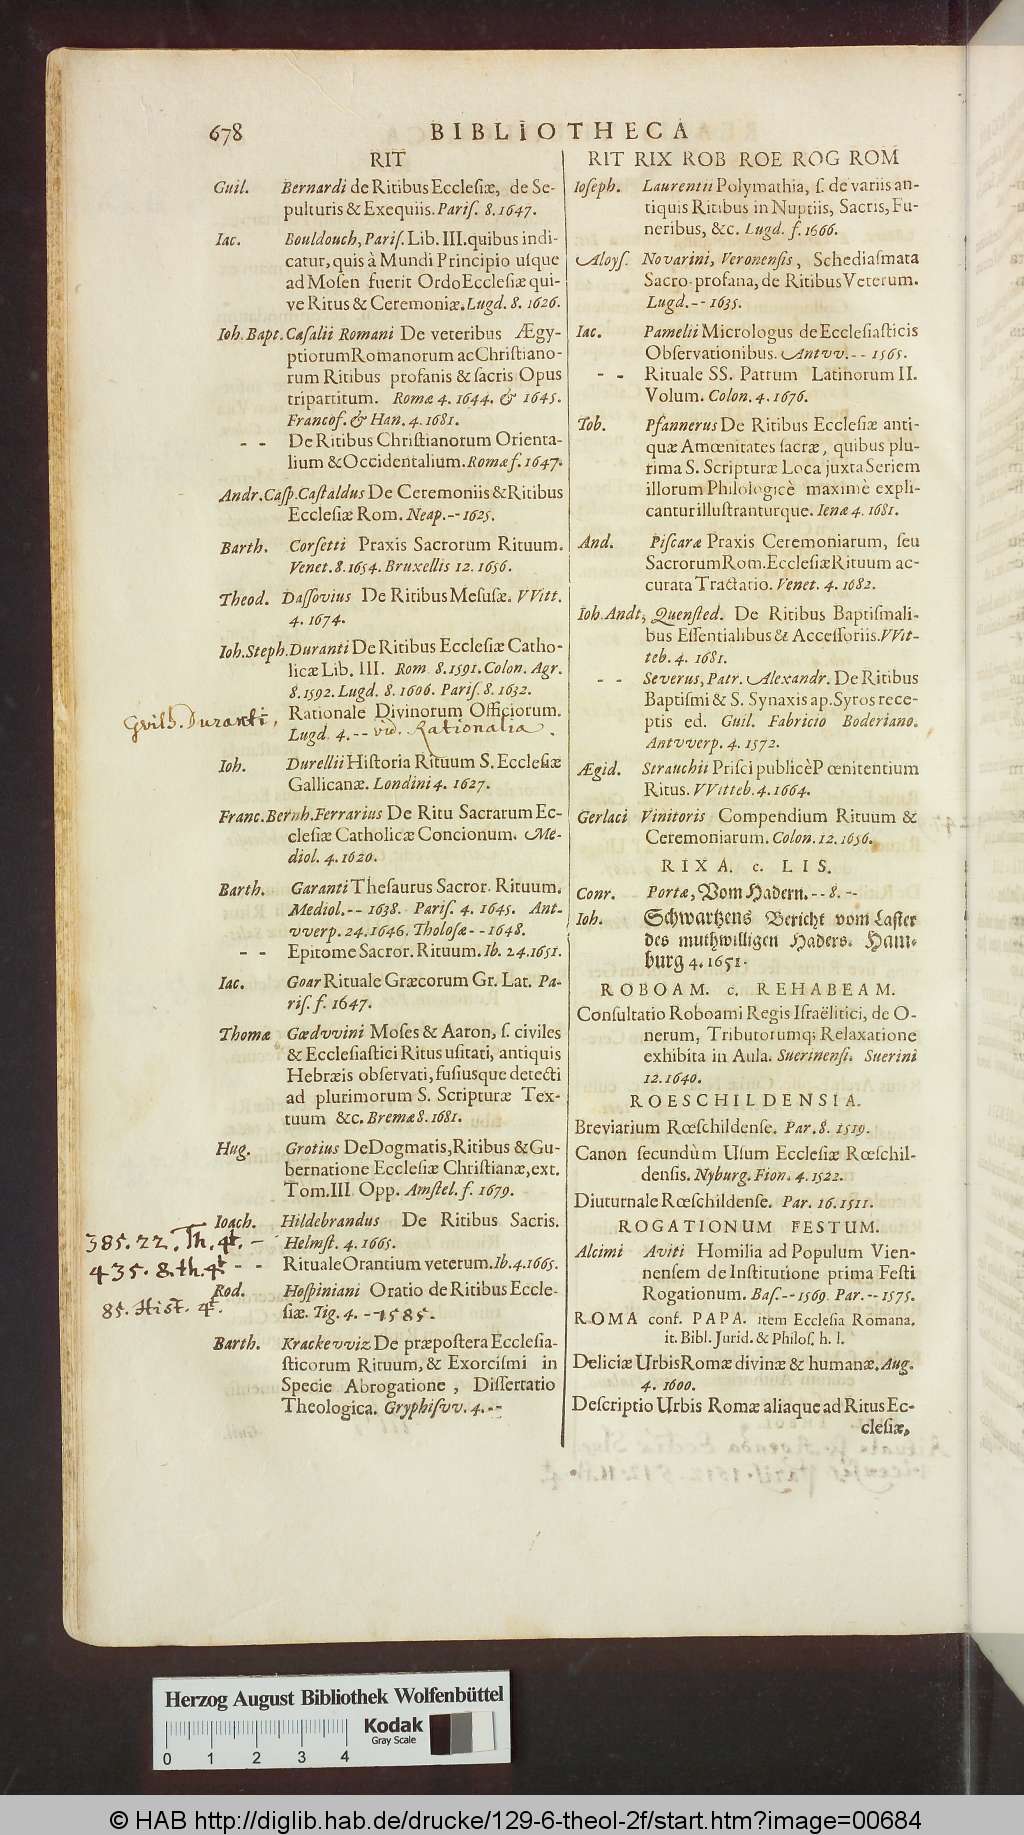 678 BIBLIOTHECA
RIT
Guil. Bernardi de Ritibus Ecclesiæ, de Se-
pulturis & Exequiis. Pariſ. 8. 1647.
Iac. Bouldouch, Pariſ. Lib. III. quibus indi-
catur, quis à Mundi Principio uſque
ad Moſen fuerit Ordo Eccleſiæ qui-
ve Ritus & Ceremoniæ. Lugd. 8. 1626.
Ioh. Bapt. Caſalii Romani De veteribus Ægy-
ptiorum Romanorum ac Chriſtiano-
rum Ritibus profanis & ſacris Opus
tripartitum. Romæ 4. 1644. & 1645.
Francof. & Han. 4. 1681.
- - De Ritibus Chriſtianorum Orienta-
lium & Occidentalium. Romæ f. 1647.
Andr. Caſp. Caſtaldus De Ceremoniis & Ritibus
Eccleſiæ Rom. Neap. -- 1625.
Barth. Corſetti Praxis Sacrorum Rituum.
Venet. 8. 1654. Bruxellis 12. 1656.
Theod. Daſſovius De Ritibus Meſuſæ. VVitt.
4. 1674.
Ioh. Steph. Duranti De Ritibus Eccleſiæ Catho-
licæ Lib. III. Rom. 8. 1591. Colon. Agr.
8. 1592. Lugd. 8. 1606. Pariſ. 8. 1632.
Gvilh. Duranti, Rationale Divinorum Officiorum.
Lugd. 4. -- vid. Rationalia.
Ioh. Durellii Hiſtoria Rituum S. Eccleſiæ
Gallicanæ. Londini 4. 1627.
Franc. Bernh. Ferrarius De Ritu Sacrarum Ec-
cleſiæ Catholicæ Concionum. Me-
diol. 4. 1620.
Barth. Garanti Theſaurus Sacror. Rituum.
Mediol. -- 1638. Pariſ. 4. 1645. Ant-
vverp. 24. 1646. Tholoſæ -- 1648.
- - Epitome Sacror. Rituum. Ib. 24. 1651.
Iac. Goar Rituale Græcorum Gr. Lat. Pa-
riſ. f. 1647.
Thomæ Gœdvvini Moſes & Aaron, ſ. civiles
& Eccleſiaſtici Ritus uſitati, antiquis
Hebræis obſervati, fuſiusque detecti
ad plurimorum S. Scripturæ Tex-
tuum &c. Bremæ 8. 1681.
Hug. Grotius De Dogmatis, Ritibus & Gu-
bernatione Eccleſiæ Chriſtianæ, ext.
Tom. III. Opp. Amſtel. f. 1679.
Ioach. Hildebrandus De Ritibus Sacris.
385. 22. Th. 4t. - Helmſt. 4. 1665.
435. 8. th. 4t - - Rituale Orantium veterum. Ib. 4. 1665.
85. Hist. 4t. Rod. Hoſpiniani Oratio de Ritibus Eccle-
ſiæ. Tig. 4. -- 1585.
Barth. Krackevviz De præpoſtera Eccleſia-
ſticorum Rituum, & Exorciſmi in
Specie Abrogatione, Diſſertatio
Theologica. Gryphiſvv. 4. --
RIT RIX ROB ROE ROG ROM
Ioſeph. Laurentii Polymathia, ſ. de variis an-
tiquis Ritibus in Nuptiis, Sacris, Fu-
neribus, &c. Lugd. f. 1666.
Aloyſ. Novarini, Veronenſis, Schediaſmata
Sacro-profana, de Ritibus Veterum.
Lugd. -- 1635.
Iac. Pamelii Micrologus de Eccleſiaſticis
Obſervationibus. Antvv. -- 1565.
- - Rituale SS. Patrum Latinorum II.
Volum. Colon. 4. 1676.
Tob. Pfannerus De Ritibus Eccleſiæ anti-
quæ Amœnitates ſacræ, quibus plu-
rima S. Scripturæ Loca juxta Seriem
illorum Philologicè maximè expli-
cantur illuſtranturque. Ienæ 4. 1681.
And. Piſcaræ Praxis Ceremoniarum, ſeu
Sacrorum Rom. Eccleſiæ Rituum ac-
curata Tractatio. Venet. 4. 1682.
Ioh. Andr. Quenſted. De Ritibus Baptiſmali-
bus Eſſentialibus & Acceſſoriis. VVit-
teb. 4. 1681.
- - Severus, Patr. Alexandr. De Ritibus
Baptiſmi & S. Synaxis ap. Syros rece-
ptis ed. Guil. Fabricio Boderiano.
Antvverp. 4. 1572.
Ægid. Strauchii Priſci publicè Pœnitentium
Ritus. VVitteb. 4. 1664.
Gerlaci Vinitoris Compendium Rituum &
Ceremoniarum. Colon. 12. 1656.
RIXA. c. LIS.
Conr. Portæ, Vom Hadern. -- 8. --
Ioh. Schwartzens Bericht vom Laſter
des muthwilligen Haders. Ham-
burg 4. 1651.
ROBOAM. c. REHABEAM.
Conſultatio Roboami Regis Iſraëlitici, de O-
nerum, Tributorumq; Relaxatione
exhibita in Aula. Suerinenſi. Suerini
12. 1640.
ROESCHILDENSIA.
Breviarium Rœſchildenſe. Par. 8. 1519.
Canon ſecundùm Uſum Eccleſiæ Rœſchil-
denſis. Nyburg. Fion. 4. 1522.
Diuturnale Rœſchildenſe. Par. 16. 1511.
ROGATIONUM FESTUM.
Alcimi Aviti Homilia ad Populum Vien-
nenſem de Inſtitutione prima Feſti
Rogationum. Baſ. -- 1569. Par. -- 1575.
ROMA conf. PAPA. item Eccleſia Romana.
it. Bibl. Jurid. & Philoſ. h. l.
Deliciæ Urbis Romæ divinæ & humanæ. Aug.
4. 1600.
Deſcriptio Urbis Romæ aliaque ad Ritus Ec-
cleſiæ,
Herzog August Bibliothek Wolfenbüttel
Kodak
Gray Scale
0 1 2 3 4
© HAB http://diglib.hab.de/drucke/129-6-theol-2f/start.htm?image=00684